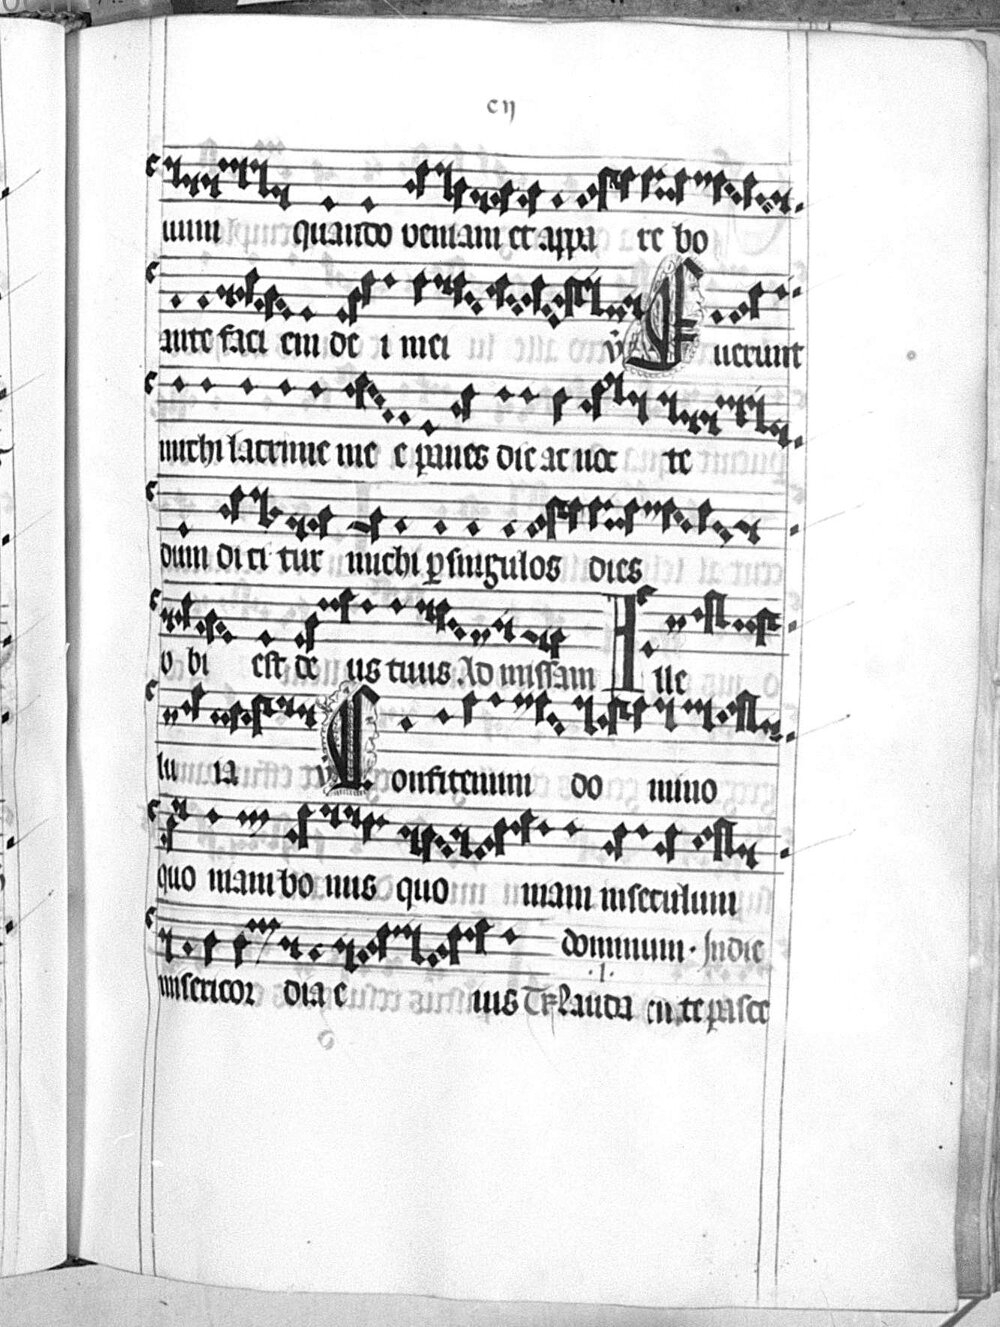 cii
uum quando veniam et appa re bo
ante faci em de i mei v Fuerunt
michi lacrime me e panes die ac noc te
dum di ci tur michi p singulos dies
u bi est de us tuus Ad missam Alle
lu ia v Confitemini do mino
quo niam bo nus quo niam in seculum
dominum . In die
misericor dia e ius Tr Lauda